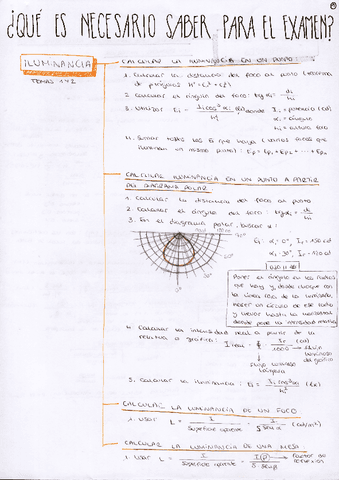 ¿QUÉ ES NECESARIO SABER PARA EL EXAMEN?
ILUMINANCIA
TEMAS 1 Y 2
CALCULAR LA ILUMINANCIA EN UN PUNTO
1. Calcular la distancia del foco al punto (teorema
de pitágoras H² = C² + C²)
2. Calcular el ángulo del foco: tg αi = di/hi
3. Utilizar Ei = donde Ii = potencia (cd)
αi = ángulo
hi = altura foco
4. Sumar todas las E que haya (varios focos que
iluminan un mismo punto): Ep = Ep1 + Ep2 + ... + Epn
CALCULAR ILUMINANCIA EN UN PUNTO A PARTIR
DEL DIAGRAMA POLAR
1. Calcular la distancia del foco al punto
2. Calcular el ángulo del foco: tg αi = di/hi
3. En el diagrama polar, buscar α:
Ej. α1: 0°, Ir = 150 cd
α2: 30°,
Poner el ángulo en los radios
que hay y, donde choque con
la línea roja de la luminaria,
hacer un círculo de ese radio
y llevar hasta la horizontal
donde pone la intensidad relativa
4. Calcular la intensidad real a partir de la
relativa o gráfica: Ireal = ϕ · Ir/1000 (cd)
flujo
luminoso
de gráfica
Flujo luminoso
lámpara
5. Calcular la iluminancia: Ei = (lx)
CALCULAR LA LUMINANCIA DE UN FOCO
1. Usar L = I / Superficie aparente = (cd/m²)
CALCULAR LA LUMINANCIA DE UNA MESA
1. Usar L = I / Superficie aparente = factor de
reflexión